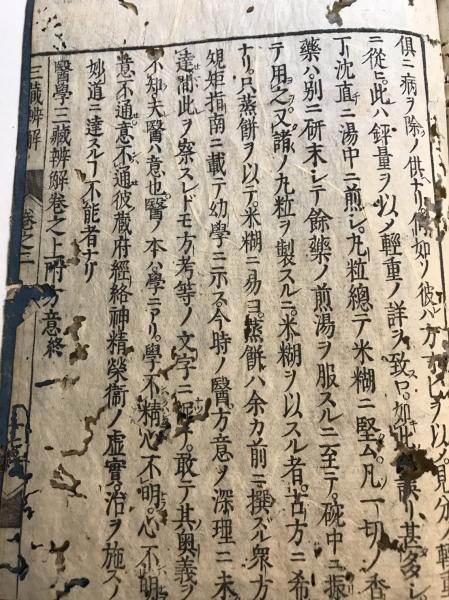 俱ニ病ヲ除ノ供ナリ。假如ソ彼ハ方寸匕ヲ以ノ見分ノ輕重
ニ從ヒ。此ハ鍾量ヲ以ノ輕重ノ詳ヲ致ス。如此誤リ甚多シ
丁沈直ニ湯中ニ煎シ。丸粒總テ米糊ニ堅ム。凡一切ノ香
藥ハ。別ニ研末シテ餘藥ノ煎湯ヲ服スルニ至テ。碗中ニ振
テ用之。又諸ノ丸粒ヲ製スルニ。米糊ヲ以スル者。古方ニ希
ナリ。只蒸餅ヲ以テ。米糊ニ易ヨ。蒸餅ハ余カ前ニ撰スル衆方
規矩指南ニ載テ幼學ニ示ス。今時ノ醫。方意ノ深理ニ未
達。間此ヲ察スレドモ方考等ノ文字ニ
ナ。敢テ其奧義ヲ
不知。夫醫ハ意也。醫ノ本ハ。學ニアリ。學不精心不明。心不明
意不通。意不通彼藏府經絡神精榮衞ノ虛實。治ヲ施スノ
妙道ニ達スルヿ不能者ナリ
醫學三藏辨解卷之上附方意終
三藏辨解
卷之上